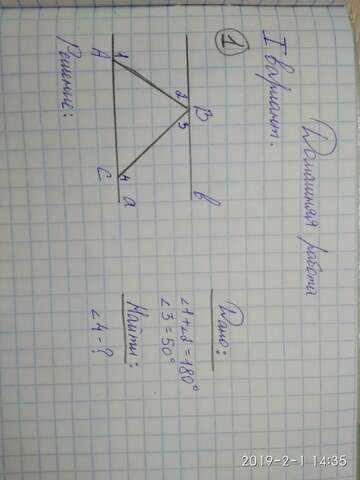 Домашняя работа
I вариант.
1
B
в
2
3
1
4
A
C
a
Дано:
∠1+∠2=180°
∠3=50°
Найти:
∠4-?
Решение:
2019-2-1 14:35